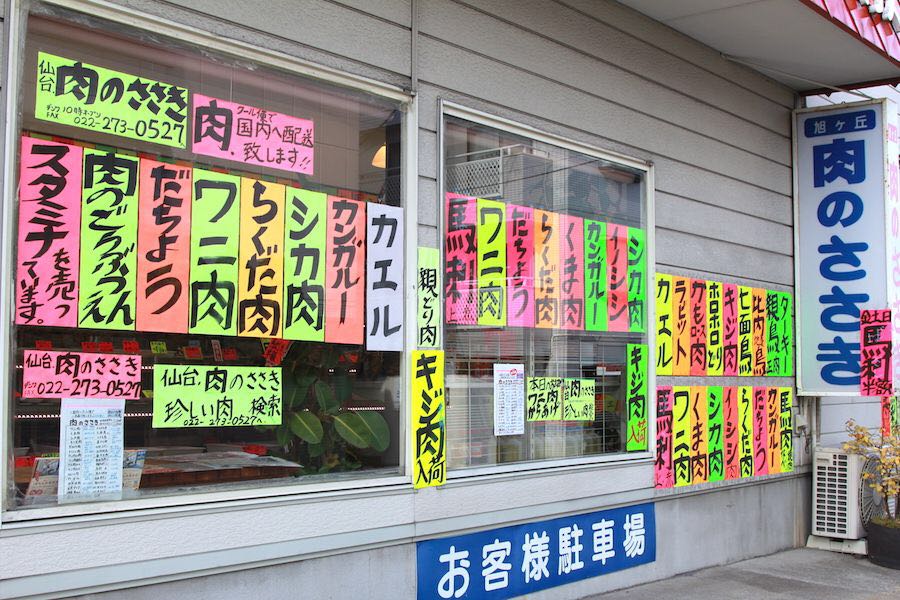 仙台.肉のささき
022-273-0527
肉 クール便で
国内へ配送
致します!!
スタミナを売っています。
肉のごくげうえん
だちょう
ワニ肉
らくだ肉
シカ肉
カンガルー
カエル
仙台.肉のささき
022-273-0527
仙台.肉のささき
珍しい肉 検索
022-273-0527へ
親どり肉
キジ肉入荷
馬刺し
ワニ肉
だちょう
らくだ肉
くま肉
カンガルー
イノシシ
シカ肉
キジ肉入荷
本日のお肉は
ワニ肉
からあげ
仙台.肉のささき
珍しい肉 検索
カエル
ラビット
カモロース
ホロホロどり
キジ肉
七面鳥
比内地鳥
親鳥肉
ターキー
馬刺し
ワニ肉
くま肉
シカ肉
イノシシ
らくだ肉
だちょう
カンガルー
馬肉
お客様駐車場
旭ヶ丘
肉のささき
金土日
馬刺
半額